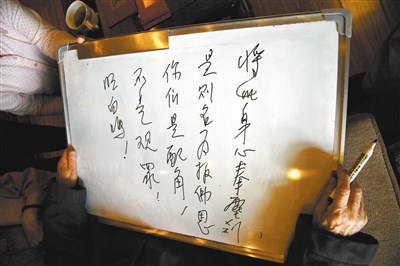 将此身心奉塵刹
是则名为报佛恩
你们是配角!
不是观眾!
明白吗!